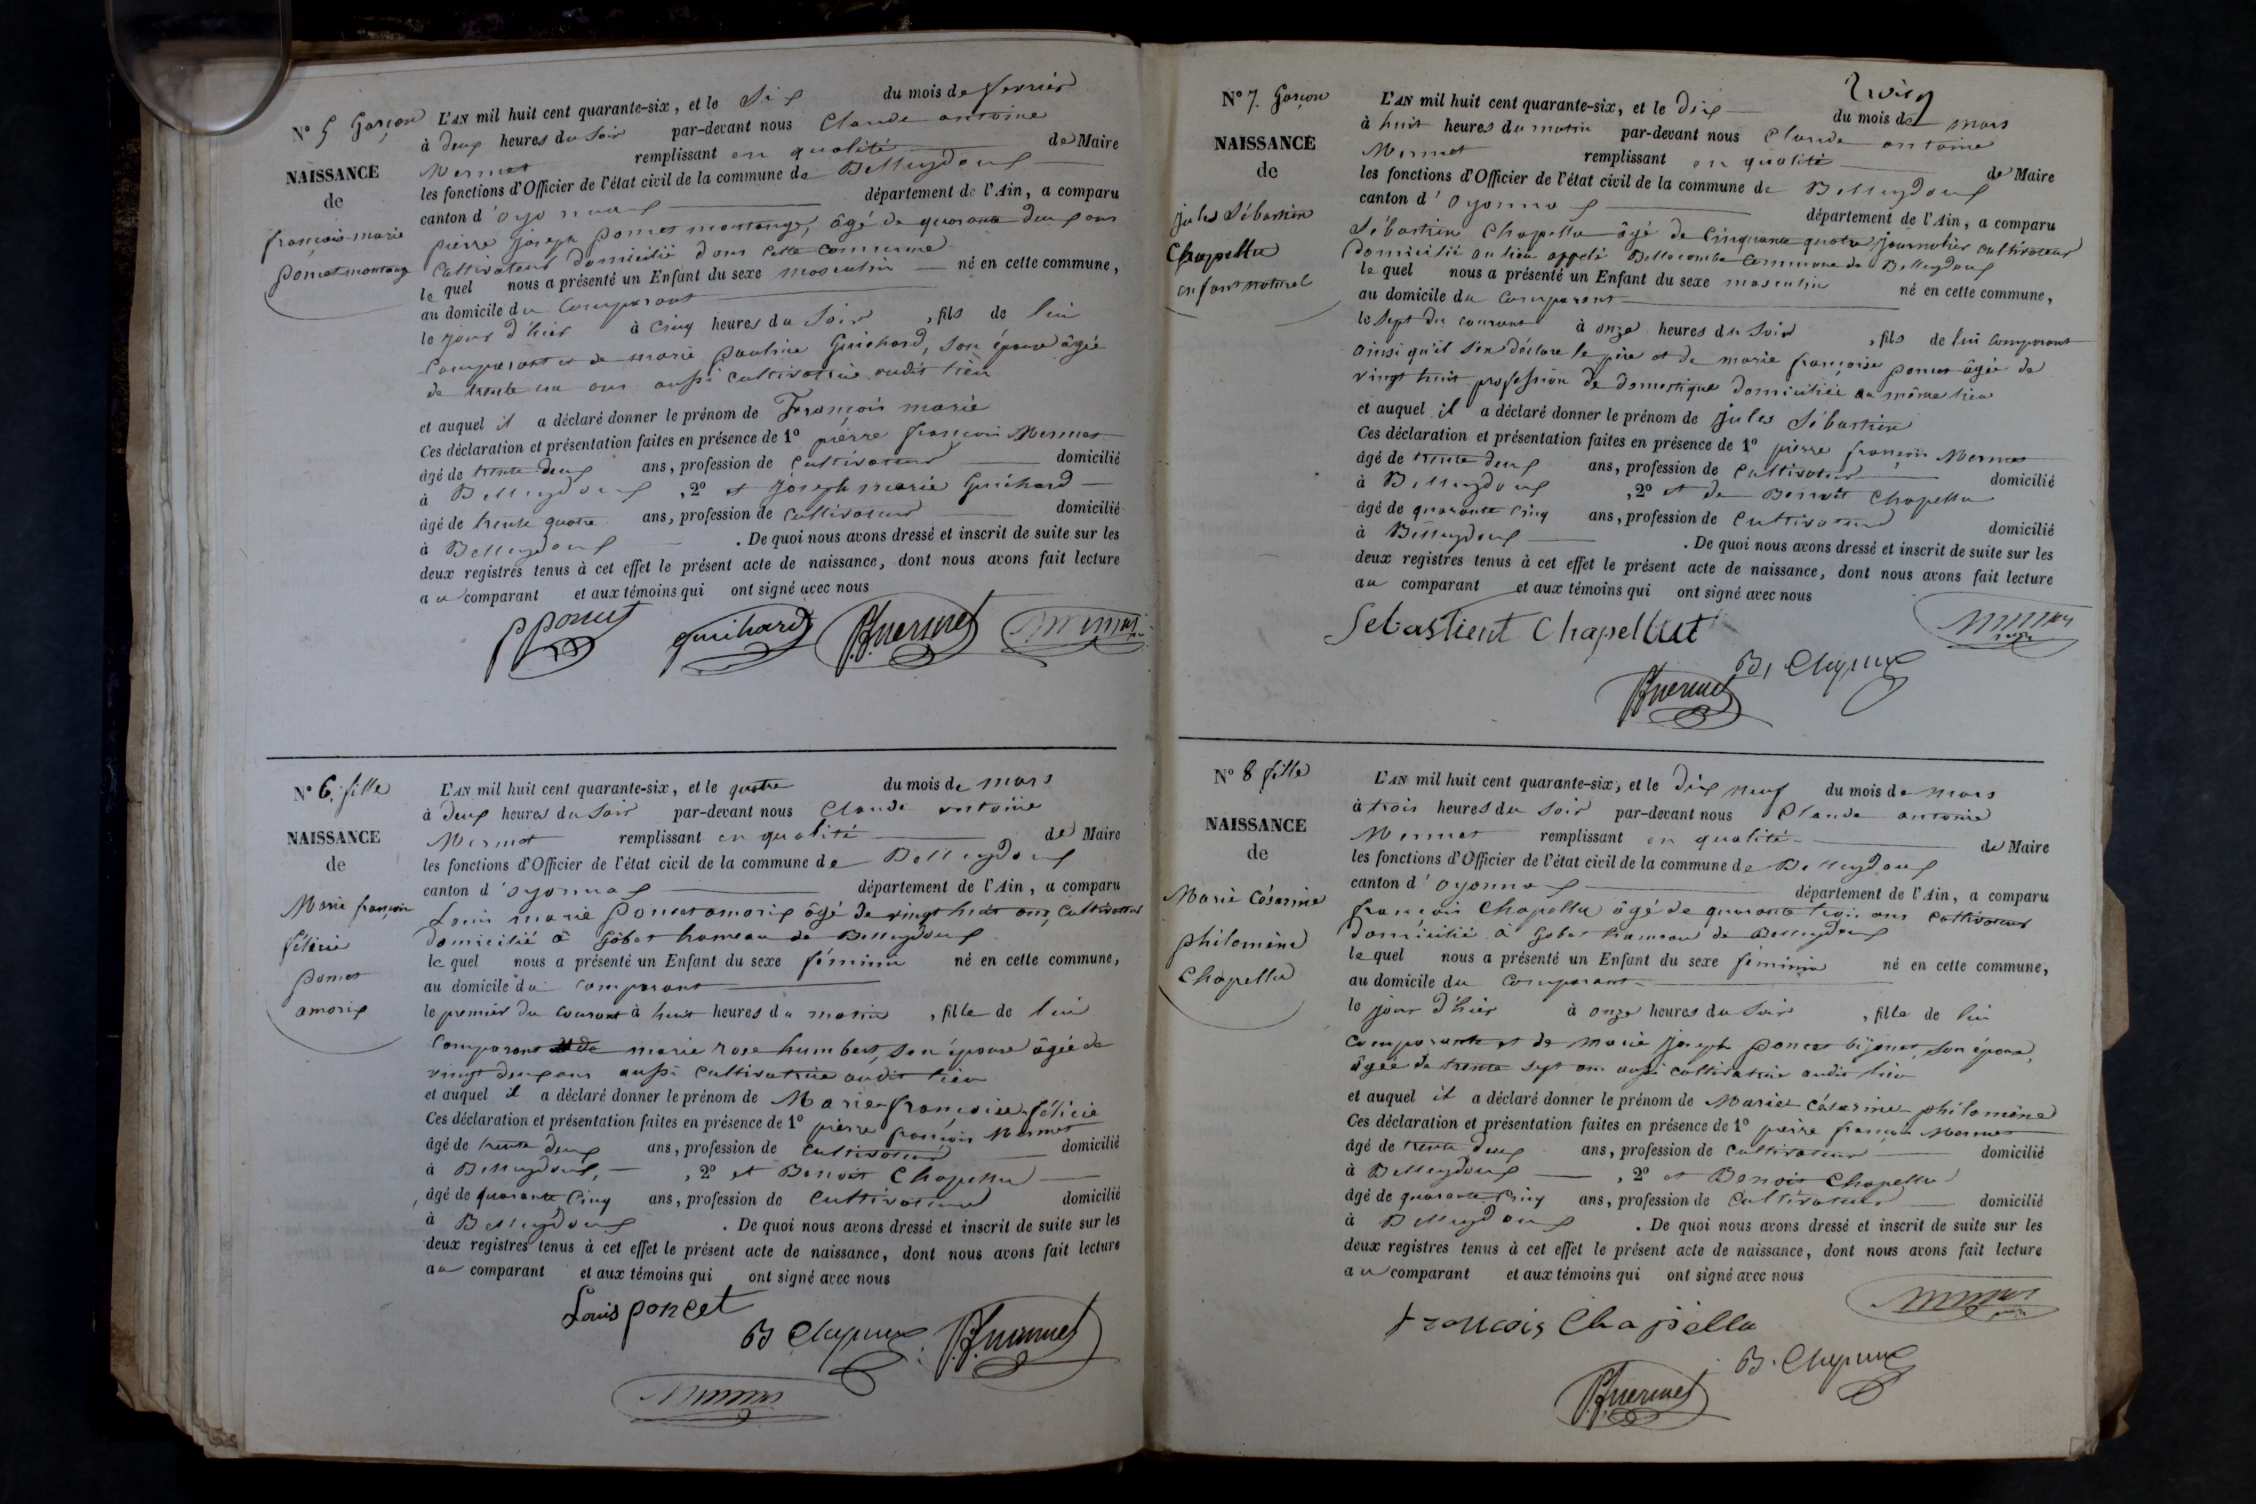 N° 5 Garçon
NAISSANCE
de
françois marie
poncet montange
L'AN mil huit cent quarante-six, et le Six du mois de fevrier
à deux heures du soir par-devant nous Claude antoine
Mermet remplissant en qualité de Maire
les fonctions d'Officier de l'état civil de la commune de Belleydoux
canton d'oyonnax département de l'Ain, a comparu
pierre joseph poncet montange, âgé de quarante deux ans
Cultivateur domicilié dans cette commune
le quel nous a présenté un Enfant du sexe masculin né en cette commune,
au domicile du Comparant
le jour d'hier à Cinq heures du Soir, fils de lui
Comparant et de marie pauline Guichard, son épouse âgée
de trente un ans aussi cultivatrice audit lieu
et auquel il a déclaré donner le prénom de François marie
Ces déclaration et présentation faites en présence de 1° pierre françois Mermet
âgé de trente deux ans, profession de Cultivateur domicilié
à Belleydoux, 2° et joseph marie Guichard
âgé de trente quatre ans, profession de Cultivateur domicilié
à Belleydoux. De quoi nous avons dressé et inscrit de suite sur les
deux registres tenus à cet effet le présent acte de naissance, dont nous avons fait lecture
au comparant et aux témoins qui ont signé avec nous
P poncet guichard P.f. mermet Mermet
N° 6. fille
NAISSANCE
de
Marie françoise
félicie
poncet
amorix
L'AN mil huit cent quarante-six, et le quatre du mois de mars
à deux heures du soir par-devant nous Claude antoine
Mermet remplissant en qualité de Maire
les fonctions d'Officier de l'état civil de la commune de Belleydoux
canton d'oyonnax département de l'Ain, a comparu
Louis marie Poncet amorix âgé de vingt huit ans, Cultivateur
domicilié à Gobet hameau de Belleydoux
le quel nous a présenté un Enfant du sexe féminin né en cette commune,
au domicile du Comparant
le premier du courant à huit heures du matin, fille de lui
Comparant et de marie rose humbert, son épouse âgée de
vingt deux ans aussi Cultivatrice audit lieu
et auquel il a déclaré donner le prénom de Marie françoise félicie
Ces déclaration et présentation faites en présence de 1° pierre françois Mermet
âgé de trente deux ans, profession de Cultivateur domicilié
à Belleydoux, 2° et Benoit Chapellu
âgé de quarante Cinq ans, profession de Cultivateur domicilié
à Belleydoux. De quoi nous avons dressé et inscrit de suite sur les
deux registres tenus à cet effet le présent acte de naissance, dont nous avons fait lecture
au comparant et aux témoins qui ont signé avec nous
Louis poncet
P.f. mermet
Mermet
N° 7. Garçon
NAISSANCE
de
jules Sébastien
Chapellu
enfant naturel
L'AN mil huit cent quarante-six, et le dix du mois de mars
à huit heures du matin par-devant nous Claude antoine
Mermet remplissant en qualité de Maire
les fonctions d'Officier de l'état civil de la commune de Belleydoux
canton d'oyonnax département de l'Ain, a comparu
Sébastien Chapellu âgé de Cinquante quatre journalier cultivateur
domicilié au lieu appelé Bellecombe Commune de Belleydoux
le quel nous a présenté un Enfant du sexe masculin né en cette commune,
au domicile du Comparant
le sept du courant à onze heures du Soir, fils de lui comparant
ainsi qu'il s'en déclare le père et de marie françoise poncet âgée de
vingt huit profession de domestique domiciliée au même lieu
et auquel il a déclaré donner le prénom de jules Sébastien
Ces déclaration et présentation faites en présence de 1° pierre françois Mermet
âgé de trente deux ans, profession de Cultivateur domicilié
à Belleydoux, 2° et de Benoit Chapellu
âgé de quarante Cinq ans, profession de Cultivateur domicilié
à Belleydoux. De quoi nous avons dressé et inscrit de suite sur les
deux registres tenus à cet effet le présent acte de naissance, dont nous avons fait lecture
au comparant et aux témoins qui ont signé avec nous
Sebastient Chapellut Mermet
P.f. mermet
N° 8 fille
NAISSANCE
de
Marie Césarine
philomène
Chapellu
L'AN mil huit cent quarante-six, et le dix neuf du mois de mars
à trois heures du soir par-devant nous Claude antoine
Mermet remplissant en qualité de Maire
les fonctions d'Officier de l'état civil de la commune de Belleydoux
canton d'oyonnax département de l'Ain, a comparu
françois Chapellu âgé de quarante trois ans Cultivateur
domicilié à Gobet hameau de Belleydoux
le quel nous a présenté un Enfant du sexe féminin né en cette commune,
au domicile du Comparant
le jour d'hier à onze heures du Soir, fille de lui
Comparant et de marie joseph poncet bijonet, son épouse,
âgée de trente sept ans aussi cultivatrice audit lieu
et auquel il a déclaré donner le prénom de Marie Césarine philomène
Ces déclaration et présentation faites en présence de 1° pierre françois Mermet
âgé de trente deux ans, profession de Cultivateur domicilié
à Belleydoux, 2° et Benoit Chapellu
âgé de quarante Cinq ans, profession de Cultivateur domicilié
à Belleydoux. De quoi nous avons dressé et inscrit de suite sur les
deux registres tenus à cet effet le présent acte de naissance, dont nous avons fait lecture
au comparant et aux témoins qui ont signé avec nous
Mermet
francois Chapellu
P.f. mermet